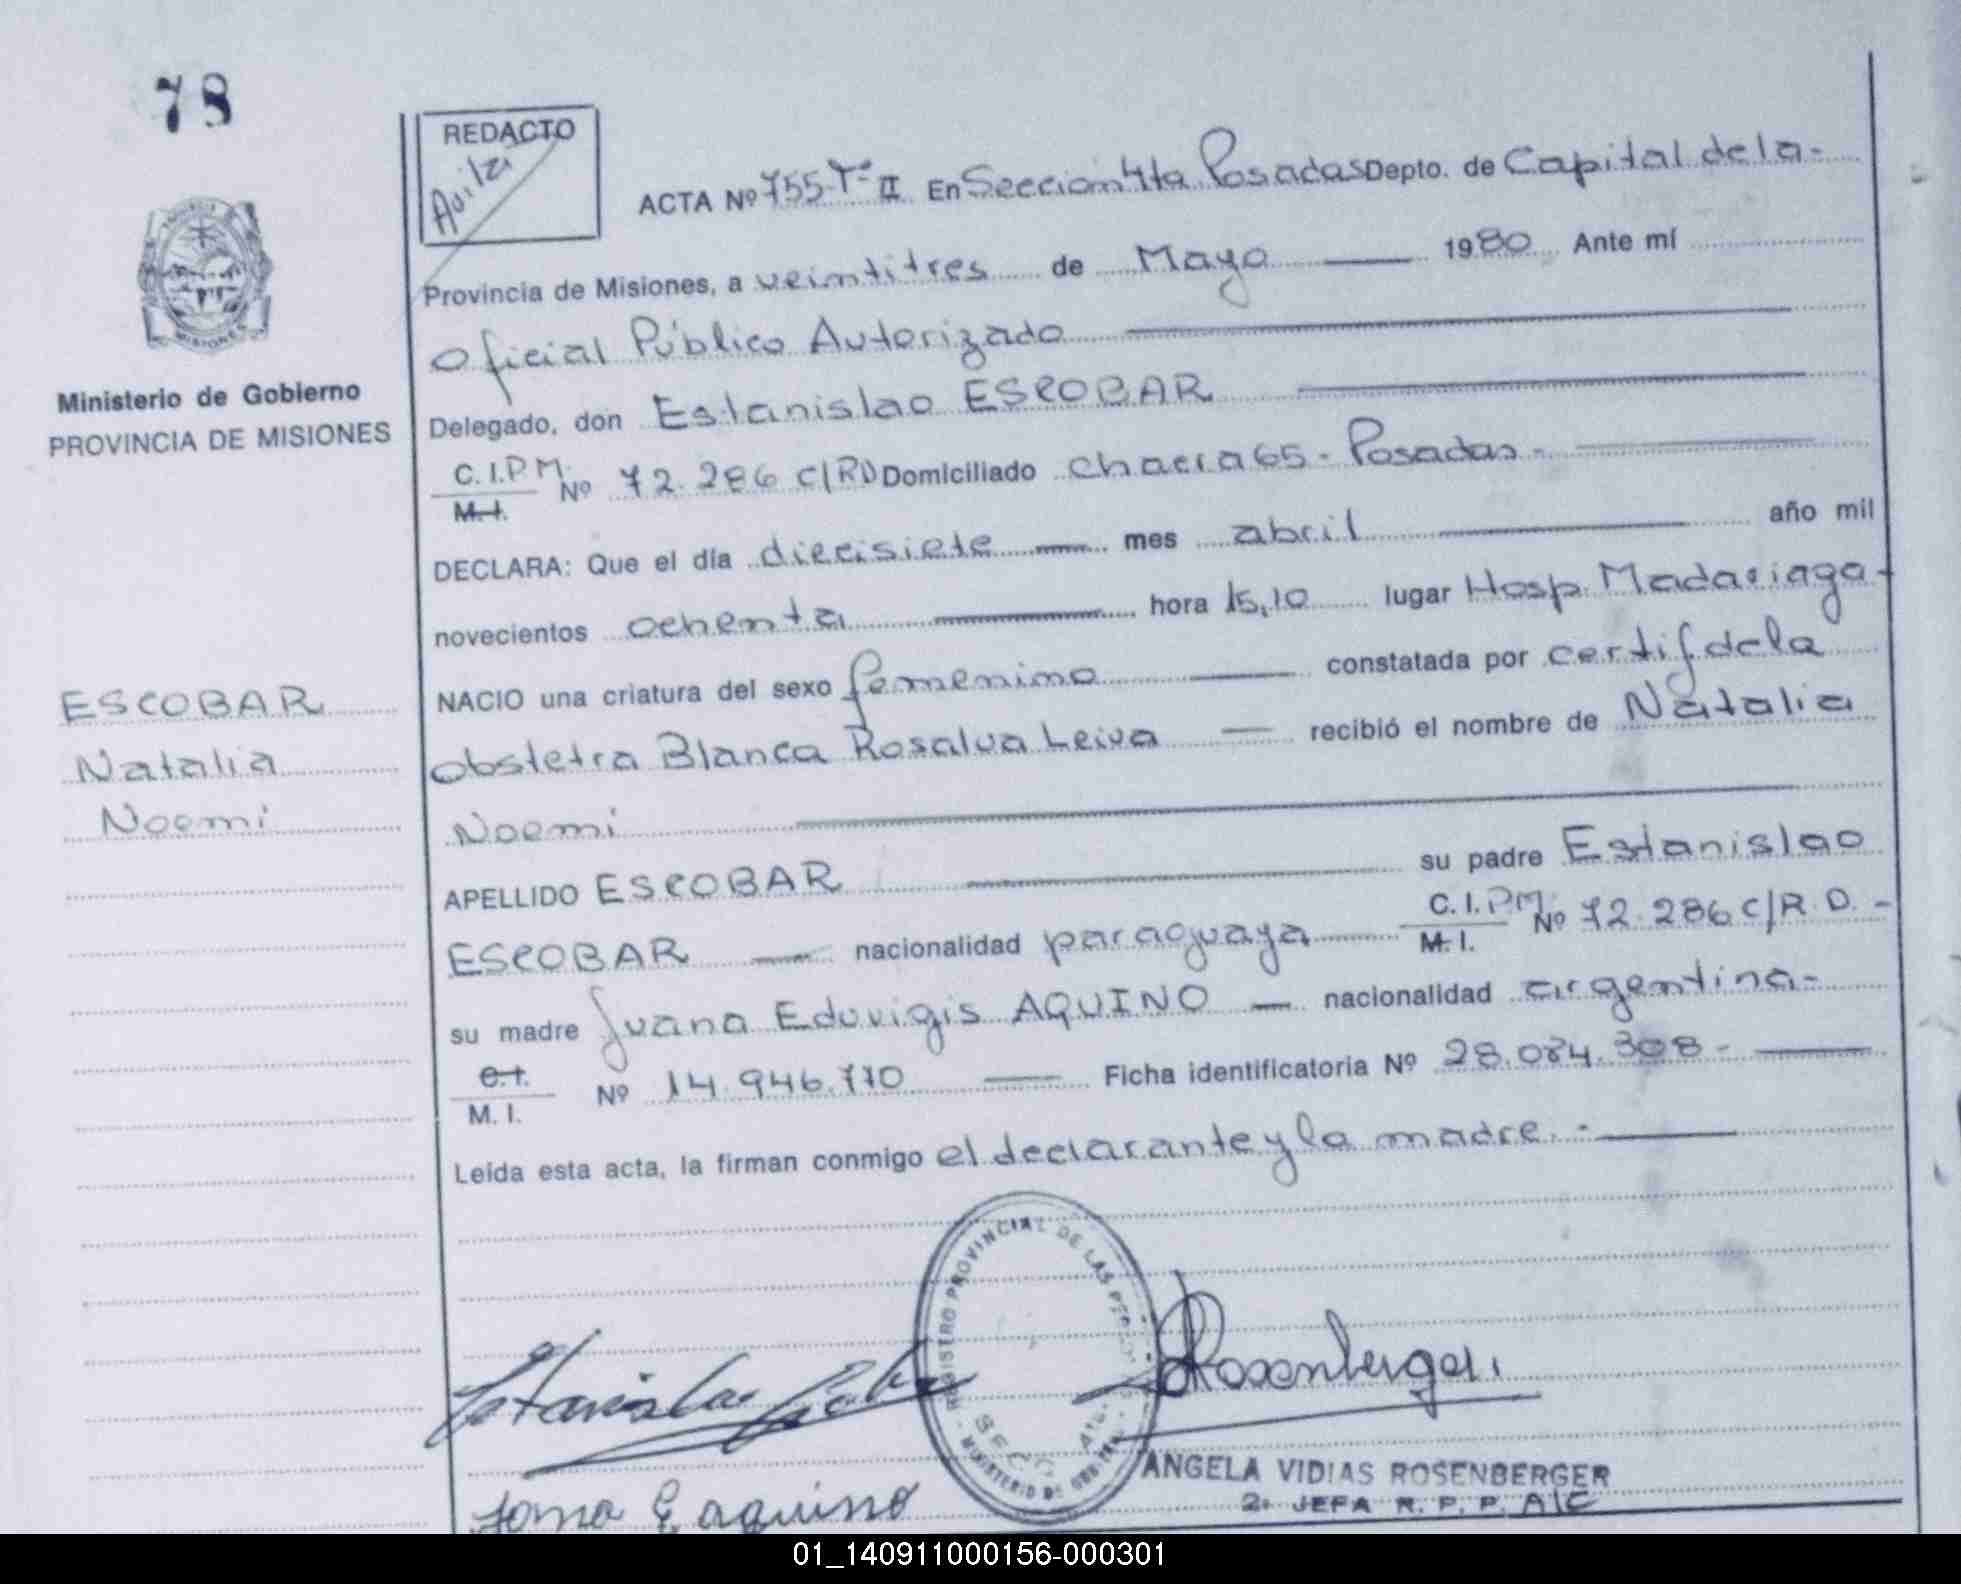 78
REDACTO
Avila
ACTA Nº 755-Tº II En Sección 4ta Posadas Depto. de Capital de la-
Provincia de Misiones, a veintitres de Mayo 1980 Ante mí
Oficial Público Autorizado
Delegado, don Estanislao ESCOBAR
C.I.P.M. M.I. Nº 72.286 C/RD Domiciliado chacra 65 - Posadas -
DECLARA: Que el día diecisiete mes abril año mil
novecientos ochenta hora 15,10 lugar Hosp. Madariaga-
NACIO una criatura del sexo femenino constatada por certif de la
obstetra Blanca Rosalva Leiva recibió el nombre de Natalia
Noemi
APELLIDO ESCOBAR su padre Estanislao
ESCOBAR nacionalidad paraguaya C.I.P.M. M.I. Nº 72.286 C/R.D.-
su madre Juana Eduvigis AQUINO nacionalidad argentina-
C.I. M.I. Nº 14.946.770 Ficha identificatoria Nº 28.084.308-
Leída esta acta, la firman conmigo el declarante y la madre.-
MISIONES
Ministerio de Gobierno
PROVINCIA DE MISIONES
ESCOBAR
Natalia
Noemi
REGISTRO PROVINCIAL DE LAS
MINISTERIO DE
SECC
Estanislao
Rosenberger
ANGELA VIDIAS ROSENBERGER
2º JEFA R. P. P. A/C
E aquino
01_140911000156-000301